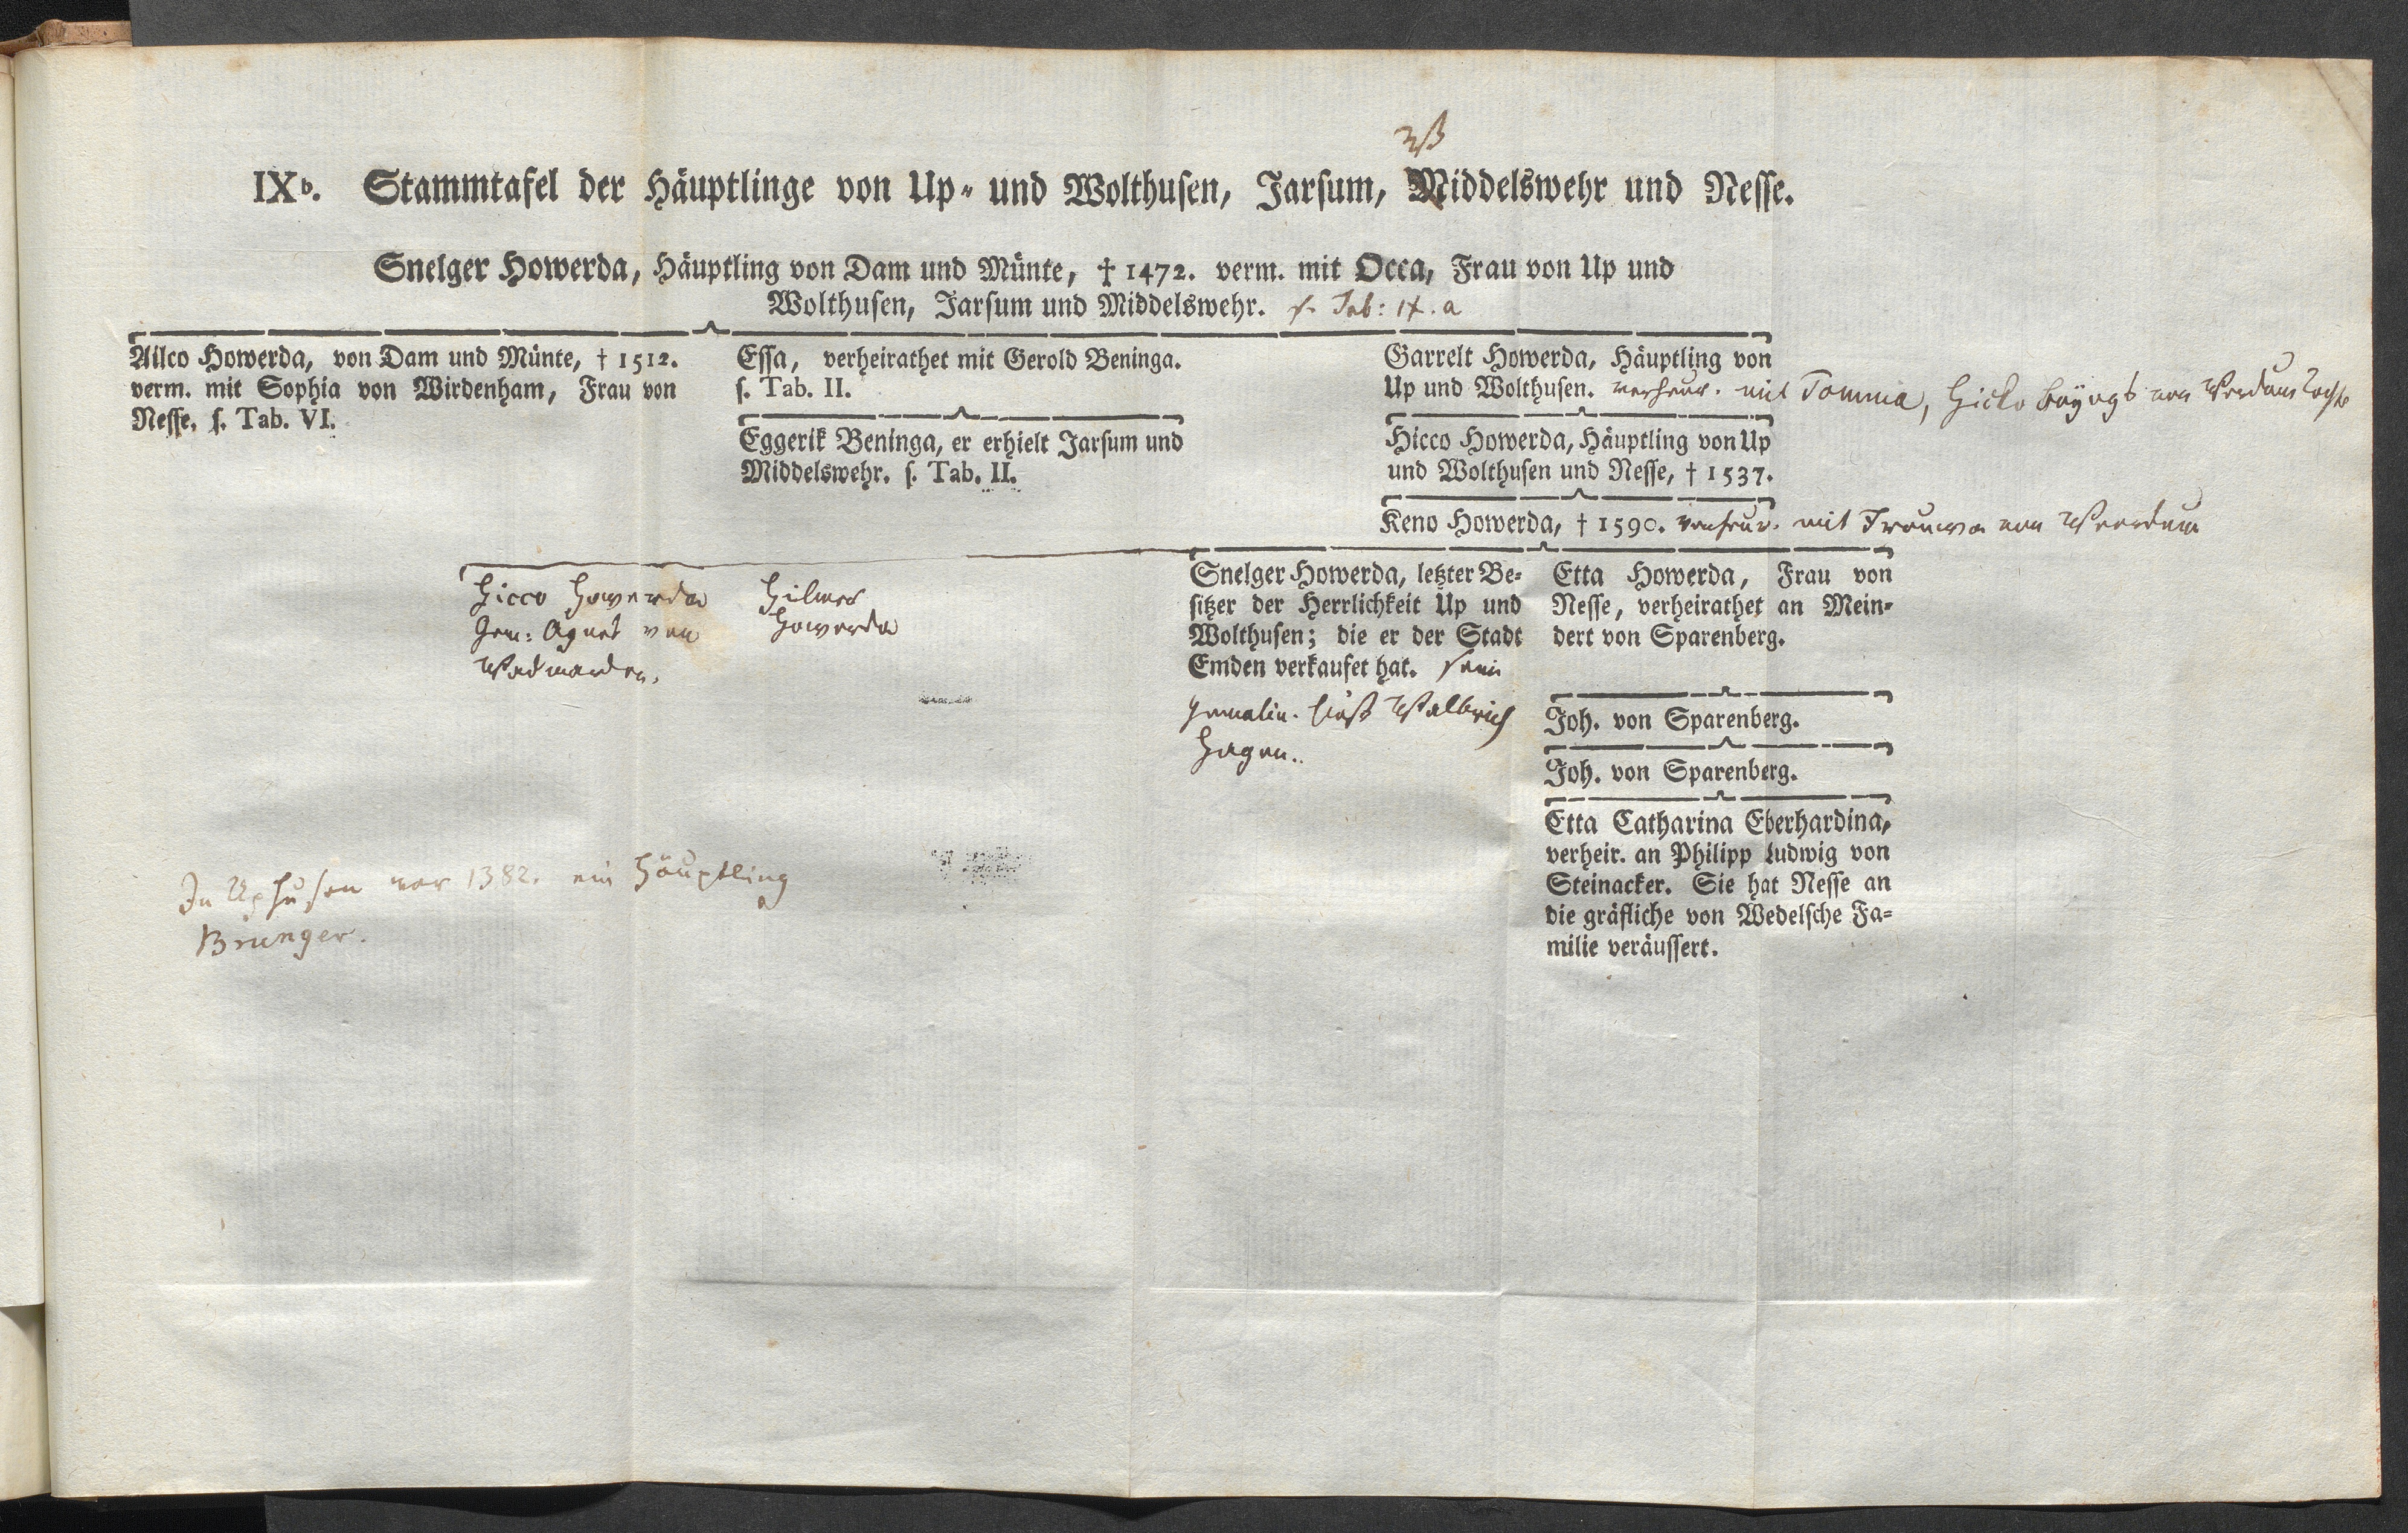 IXb. Stammtafel der Häuptlinge von Up- und Wolthusen, Jarsum, Middelswehr und Nesse.
Snelger Howerda, Häuptling von Dam und Münte, † 1472. verm. mit Occa, Frau von Up und
Wolthusen, Jarsum und Middelswehr. s. Tab: IX. a
Ailco Howerda, von Dam und Münte, † 1512.
verm. mit Sophia von Wirdenham, Frau von
Nesse. s. Tab. VI.
Essa, verheirathet mit Gerold Beninga.
s. Tab. II.
Eggerik Beninga, er erhielt Jarsum und
Middelswehr. s. Tab. II.
Garrelt Howerda, Häuptling von
Up und Wolthusen. verheur. mit Tomma, Hicko von Werdum
Hicco Howerda, Häuptling von Up
und Wolthusen und Nesse, † 1537.
Keno Howerda, † 1590. verheur. mit Frouwa von Werdum
Hicco Howerda
Gem: Agnes von
Hilmer
Howerda
Snelger Howerda, letzter Be-
sitzer der Herrlichkeit Up und
Wolthusen; die er der Stadt
Emden verkaufet hat. sein
Gemalin. hieß Walbrich
Hagen.
Etta Howerda, Frau von
Nesse, verheirathet an Mein-
dert von Sparenberg.
Joh. von Sparenberg.
Joh. von Sparenberg.
Etta Catharina Eberhardina,
verheir. an Philipp Ludwig von
Steinacker. Sie hat Nesse an
die gräfliche von Wedelsche Fa-
milie veräussert.
In Uphusen war 1382. ein Häuptling
Brunger.